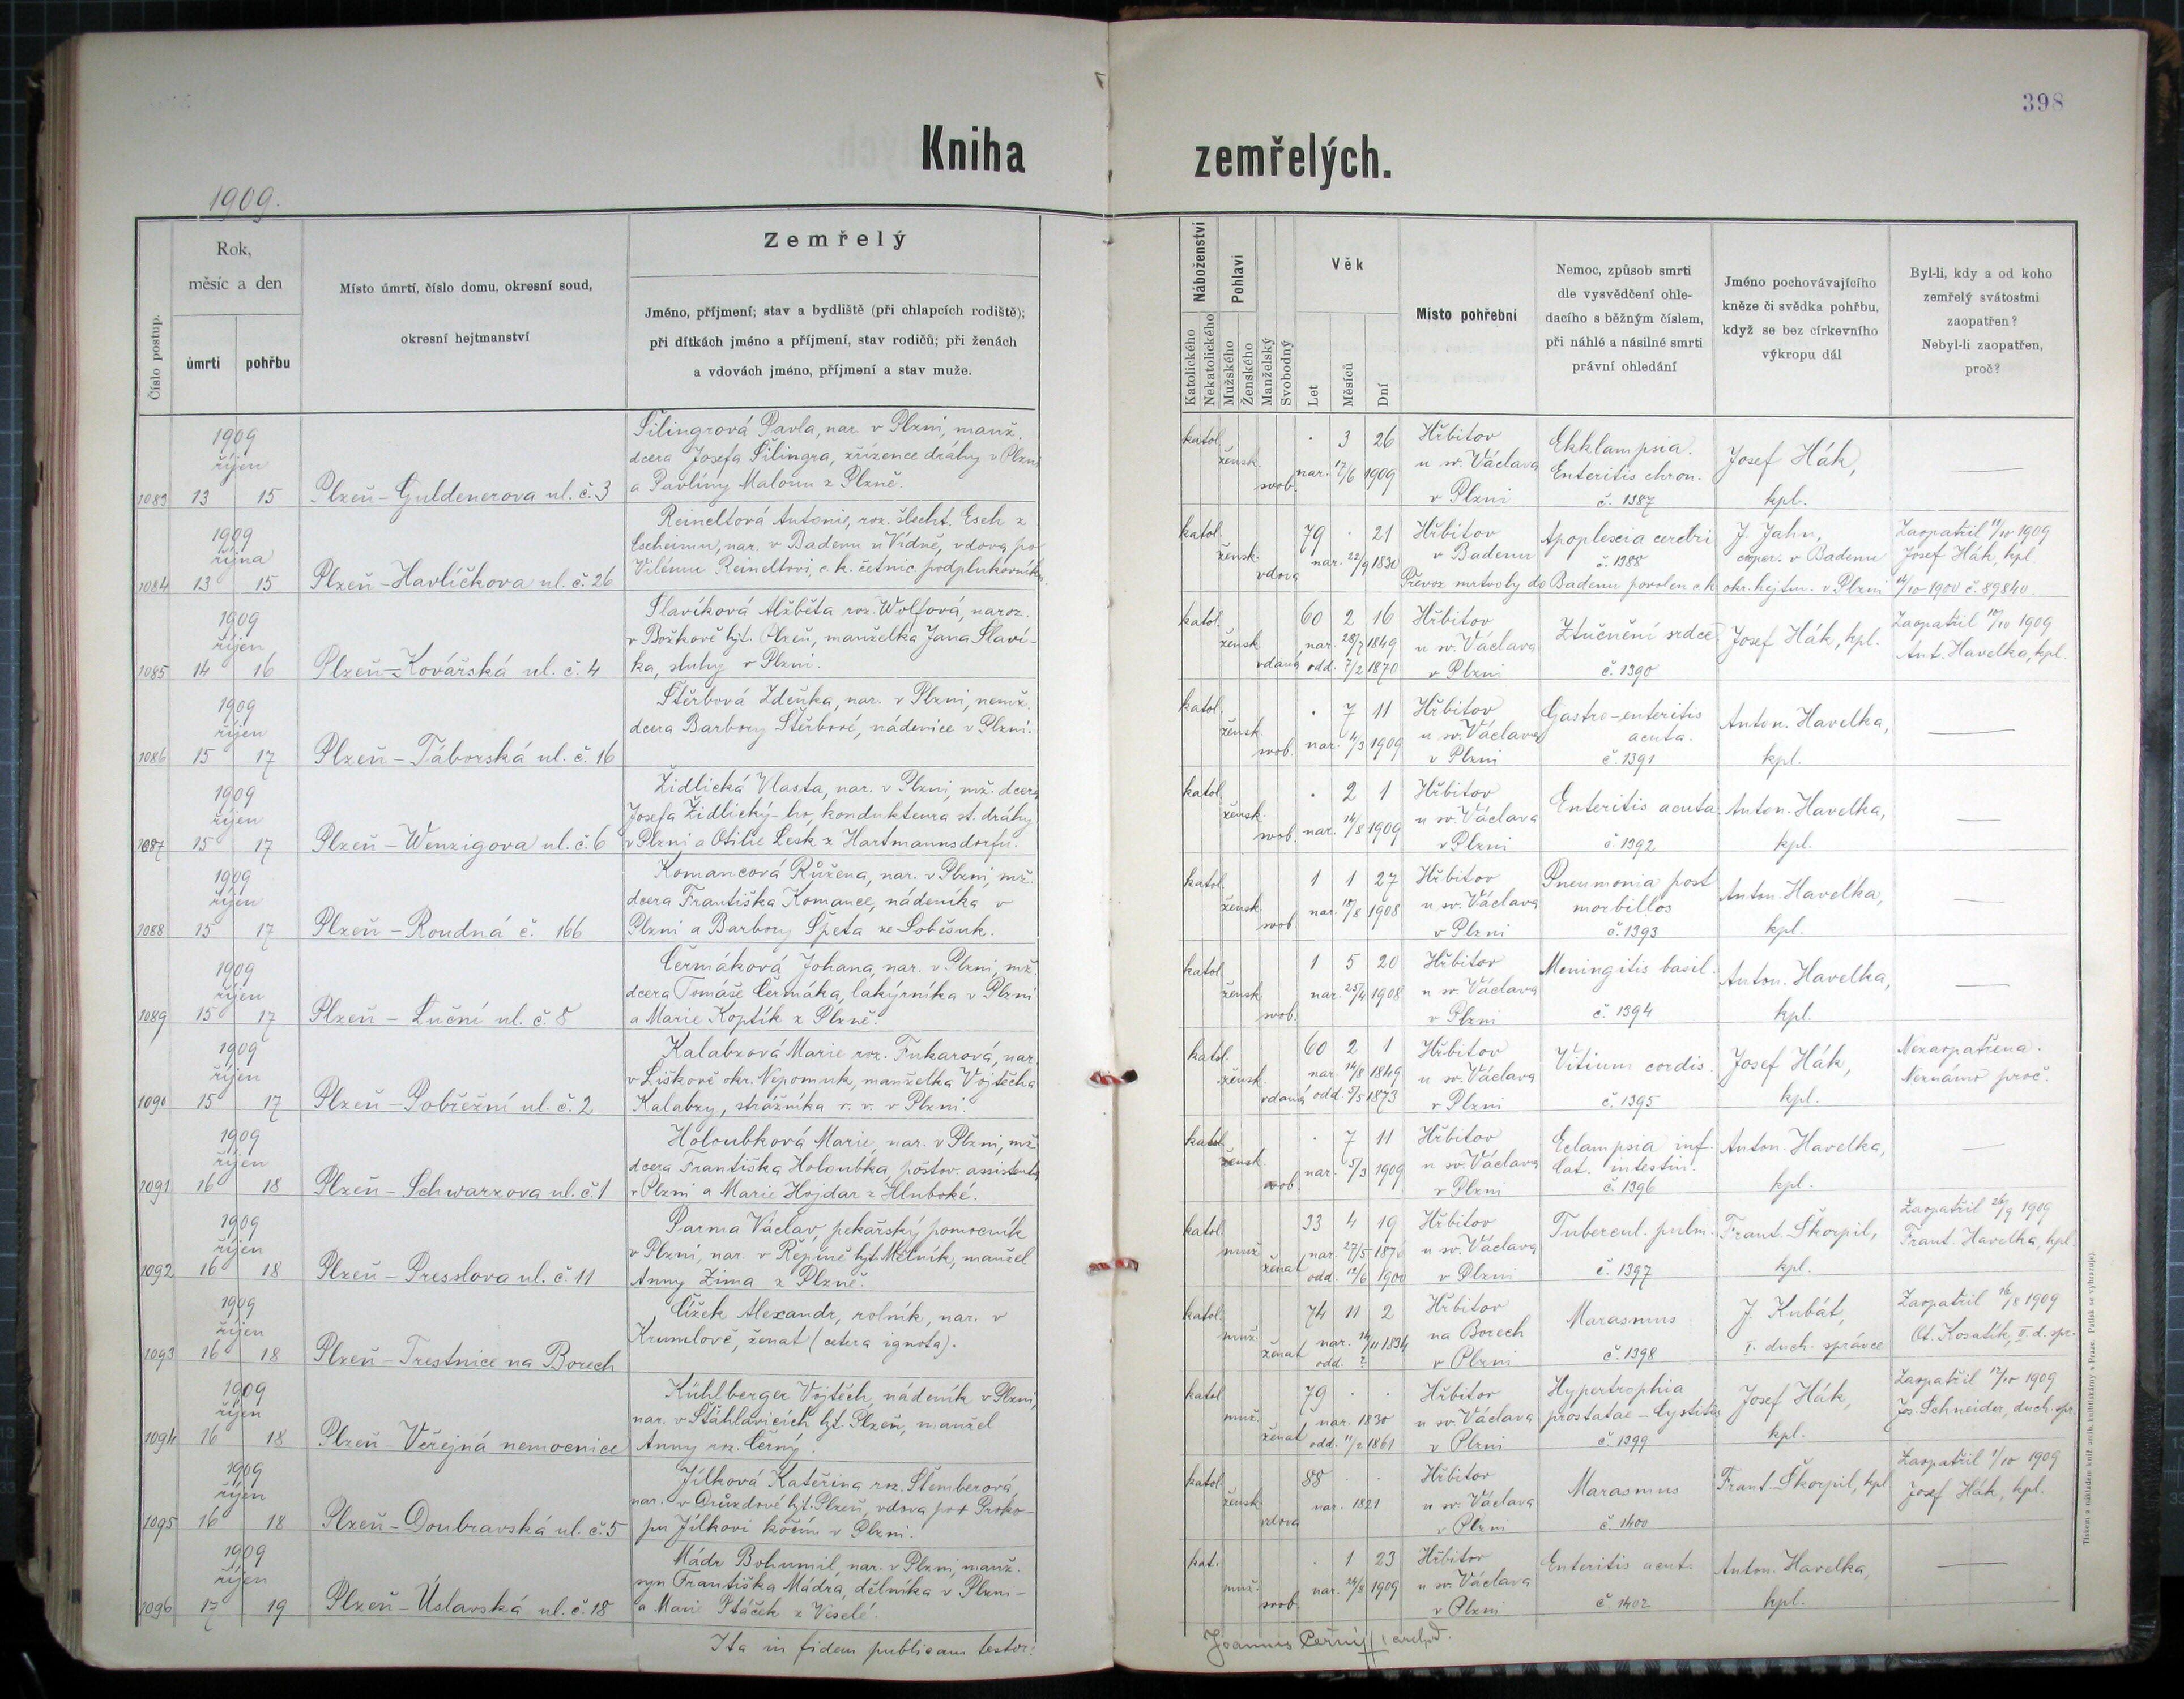 398
Kniha zemřelých.
1909.
Číslo postup.
Rok,
měsíc a den
úmrtí
pohřbu
Místo úmrtí, číslo domu, okresní soud,
okresní hejtmanství
Zemřelý
Jméno, příjmení; stav a bydliště (při chlapcích rodiště);
při dítkách jméno a příjmení, stav rodičů; při ženách
a vdovách jméno, příjmení a stav muže.
Náboženství
Katolického
Nekatolického
Pohlaví
Mužského
Ženského
Manželský
Svobodný
Věk
Let
Měsíců
Dní
Místo pohřební
Nemoc, způsob smrti
dle vysvědčení ohle-
dacího s běžným číslem,
při náhlé a násilné smrti
právní ohledání
Jméno pochovávajícího
kněze či svědka pohřbu,
když se bez církevního
výkropu dál
Byl-li, kdy a od koho
zemřelý svátostmi
zaopatřen?
Nebyl-li zaopatřen,
proč?
1909
říjen
1083 13 15
Plzeň-Guldenerova ul. č. 3
Šilingrová Pavla, nar. v Plzni, manž.
dcera Josefa Šilingra, zřízence dráhy v Plzni
a Pavlíny Malonn z Plzně.
katol. žensk. svob.
3 26
nar. 17/6 1909
Hřbitov
u sv. Václava
v Plzni
Ekklampsia.
Enteritis chron.
č. 1387
Josef Hák,
kpl.
1909
října
1084 13 15
Plzeň-Havlíčkova ul. č. 26
Reineltová Antonie, roz. šlecht. Esch z
Escheimu, nar. v Badenu u Vídně, vdova po
Vilému Reineltovi, c. k. četnic. podplukovníku.
katol. žensk. vdova
79 . 21
nar. 22/9 1830
Hřbitov
v Badenu
Apoplexia cerebri
č. 1388
J. Jahn,
cooper. v Badenu
Zaopatřil 11/10 1909
Josef Hák, kpl.
Převoz mrtvoly do Badenu povolen c. k. okr. hejtm. v Plzni 14/10 1900 č. 89840.
1909
říjen
1085 14 16
Plzeň-Kovářská ul. č. 4
Slavíková Alžběta roz. Wolfová, naroz.
v Božkově hjt. Plzeň, manželka Jana Slaví-
ka, sluhy v Plzni.
katol. žensk. vdaná
60 2 16
nar. 28/7 1849
odd. 7/2 1870
Hřbitov
u sv. Václava
v Plzni
Ztučnění srdce
č. 1390
Josef Hák, kpl.
Zaopatřil 10/10 1909
Ant. Havelka, kpl.
1909
říjen
1086 15 17
Plzeň-Táborská ul. č. 16
Štěrbová Zdeňka, nar. v Plzni, nemž.
dcera Barbory Štěrbové, nádenice v Plzni.
katol. žensk. svob.
. 7 11
nar. 4/3 1909
Hřbitov
u sv. Václava
v Plzni
Gastro-enteritis
acuta.
č. 1391
Anton. Havelka,
kpl.
1909
říjen
1087 15 17
Plzeň-Wenzigova ul. č. 6
Židlická Vlasta, nar. v Plzni, mž. dcera
Josefa Židlický-ho, kondukteura st. dráhy
v Plzni a Otilie Lesk z Hartmannsdorfu.
katol. žensk. svob.
. 2 1
nar. 14/8 1909
Hřbitov
u sv. Václava
v Plzni
Enteritis acuta
č. 1392
Anton. Havelka,
kpl.
1909
říjen
1088 15 17
Plzeň-Roudná č. 166
Komancová Růžena, nar. v Plzni, mž.
dcera Františka Komance, nádeníka v
Plzni a Barbory Špeta ze Soběsuk.
katol. žensk. svob.
1 1 27
nar. 18/8 1908
Hřbitov
u sv. Václava
v Plzni
Pneumonia post
morbillos
č. 1393
Anton. Havelka,
kpl.
1909
říjen
1089 15 17
Plzeň - Luční ul. č. 8
Čermáková Johana, nar. v Plzni, mž.
dcera Tomáše Čermáka, lakýrníka v Plzni
a Marie Koptík z Plzně.
katol. žensk. svob.
1 5 20
nar. 25/4 1908
Hřbitov
u sv. Václava
v Plzni
Meningitis basil.
č. 1394
Anton. Havelka,
kpl.
1909
říjen
1090 15 17
Plzeň-Pobřežní ul. č. 2
Kalabzová Marie roz. Fukarová, nar.
v Liškově okr. Nepomuk, manželka Vojtěcha
Kalabzy, strážníka v. v. v Plzni.
katol. žensk. vdaná
60 2 1
nar. 14/8 1849
odd. 5/5 1873
Hřbitov
u sv. Václava
v Plzni
Vitium cordis.
č. 1395
Josef Hák,
kpl.
Nezaopatřena.
Neznámo proč.
1909
říjen
1091 16 18
Plzeň-Schwarzova ul. č. 1
Holoubková Marie, nar. v Plzni, mž.
dcera Františka Holoubka, poštov. assistenta
v Plzni a Marie Hojdar z Hluboké.
katol. žensk. svob.
. 7 11
nar. 5/3 1909
Hřbitov
u sv. Václava
v Plzni
Eclampsia inf.
Cat. intestin.
č. 1396
Anton. Havelka,
kpl.
1909
říjen
1092 16 18
Plzeň-Presslova ul. č. 11
Parma Václav, pekařský pomocník
v Plzni, nar. v Řepíně hjt. Mělník, manžel
Anny Zima z Plzně.
katol. muž. ženat
33 4 19
nar. 27/5 1876
odd. 12/6 1900
Hřbitov
u sv. Václava
v Plzni
Tubercul. pulm.
č. 1397
Frant. Škorpil,
kpl.
Zaopatřil 26/9 1909
Frant. Havelka, kpl.
1909
říjen
1093 16 18
Plzeň-Trestnice na Borech
Čížek Alexandr, rolník, nar. v
Krumlově, ženat (cetera ignota).
katol. muž. ženat
74 11 2
nar. 14/11 1834
odd. ?
Hřbitov
na Borech
v Plzni
Marasmus
č. 1398
J. Kubát,
I. duch. správce
Zaopatřil 16/8 1909
Ot. Kosatík, II. d. spr.
1909
říjen
1094 16 18
Plzeň-Veřejná nemocnice
Kühlberger Vojtěch, nádeník v Plzni,
nar. v Štáhlavicích hjt. Plzeň, manžel
Anny roz. Černý.
katol. muž. ženat
79 . .
nar. 1830
odd. 11/2 1861
Hřbitov
u sv. Václava
v Plzni
Hypertrophia
prostatae - Cystitis
č. 1399
Josef Hák,
kpl.
Zaopatřil 12/10 1909
Jos. Schneider, duch. spr.
1909
říjen
1095 16 18
Plzeň-Doubravská ul. č. 5
Jílková Kateřina roz. Štemberová,
nar. v Druzdové hjt. Plzeň, vdova po + Proko-
pu Jílkovi kočím v Plzni.
katol. žensk. vdova
88 . .
nar. 1821
Hřbitov
u sv. Václava
v Plzni
Marasmus
č. 1400
Frant. Škorpil, kpl.
Zaopatřil 1/10 1909
Josef Hák, kpl.
1909
říjen
1096 17 19
Plzeň-Úslavská ul. č. 18
Mádr Bohumil, nar. v Plzni, manž.
syn Františka Mádra, dělníka v Plzni
a Marie Ptáček z Veselé.
kat. muž. svob.
. 1 23
nar. 24/8 1909
Hřbitov
u sv. Václava
v Plzni
Enteritis acut.
č. 1402
Anton. Havelka,
kpl.
Ita in fidem publicam testor:
Joannes Černý
Tiskem a nákladem kníž. arcib. knihtiskárny v Praze. Patisk se vyhrazuje.